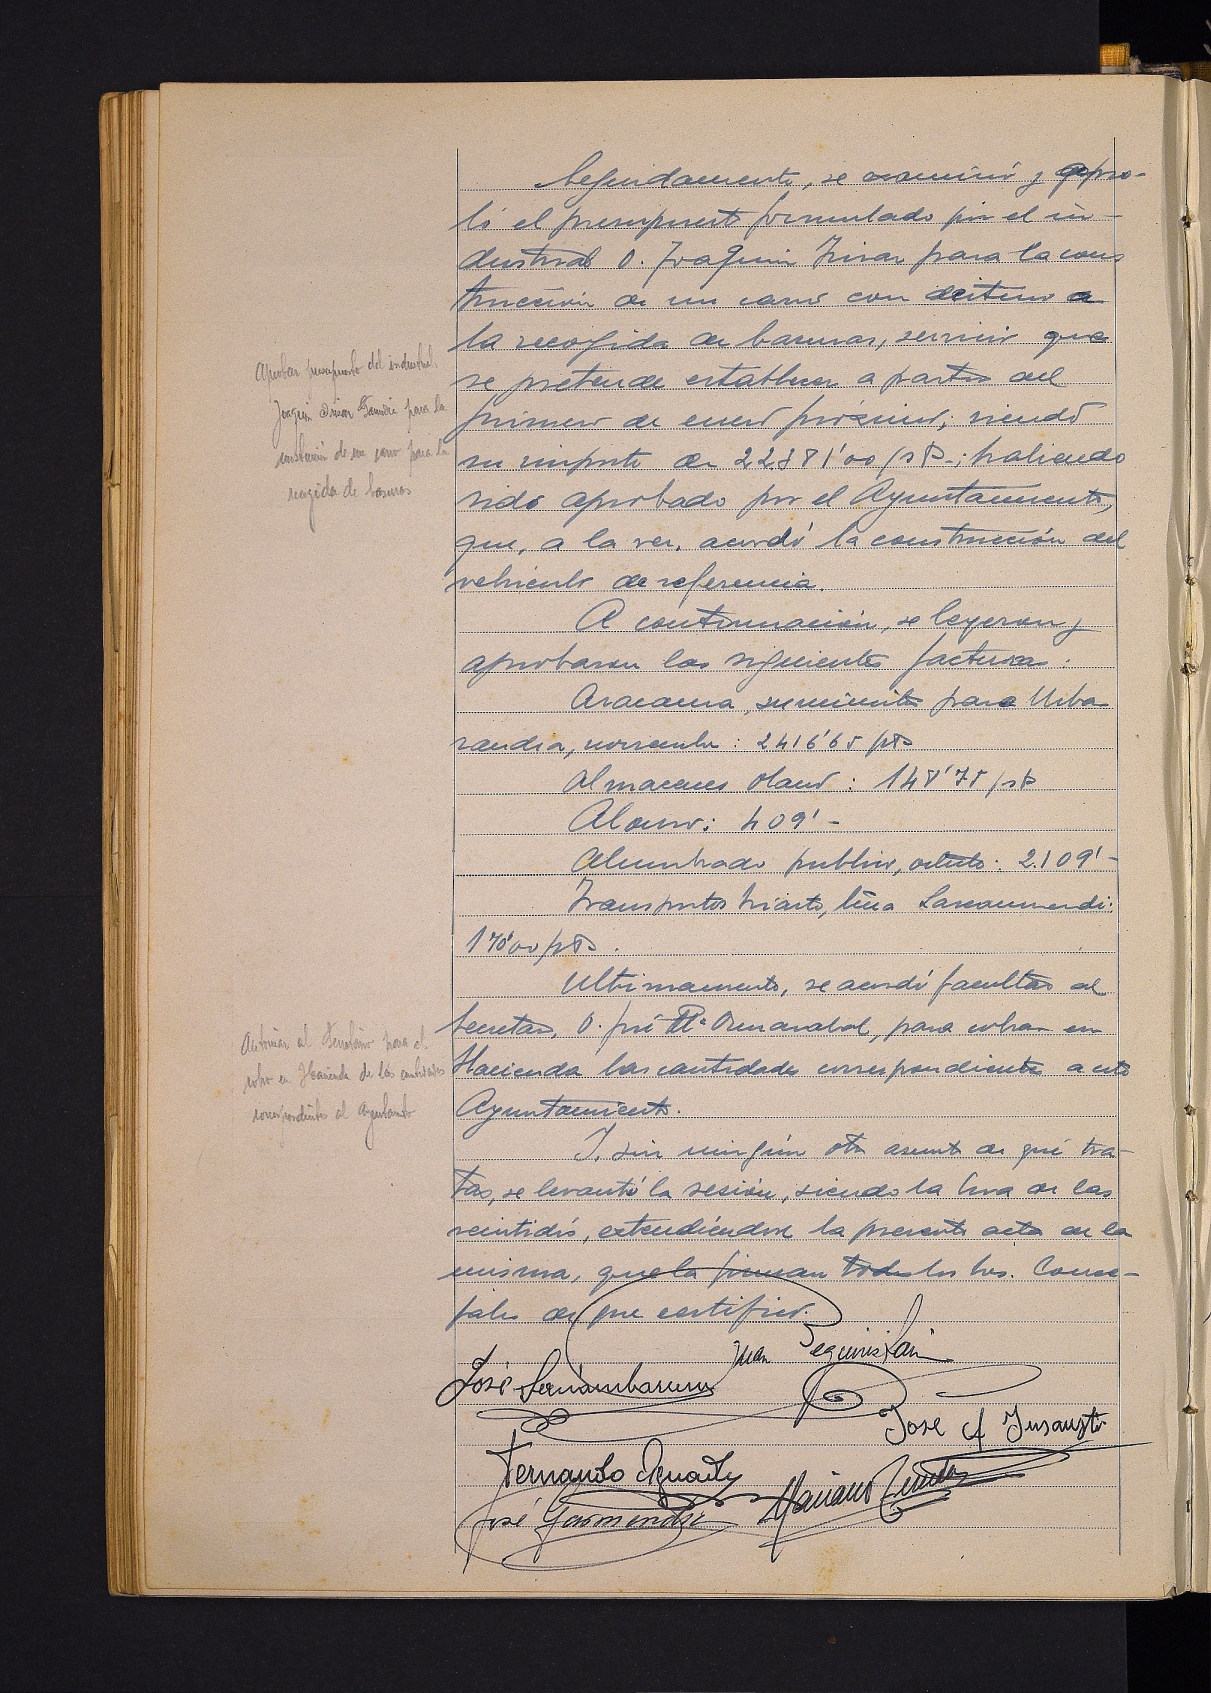 Seguidamente, se examinó y apro-
bó el presupuesto formulado por el in-
dustrial D. Joaquin para la cons
trucción de un carro con destino a
la recogida de basuras, servicio que
se pretende establecer a partir del
primero de enero próximo; siendo
su importe de pts.; habiendo
sido aprobado por el Ayuntamiento,
que, a la vez, acordó la construcción del
vehículo de referencia.
A continuación, se leyeron y
aprobaron las siguientes facturas:
Aracama, suministro para Urba
randia, noviembre: 2416'65 pts
Almacenes Olano: 148'75 pts
Alonso: 409'-
Alumbrado publico, octubre: 2.109'-
Transportes Iriarte, linea Lascaumendi:
170'00 pts.
Ultimamente, se acordó facultar al
Secretario, D. José Mª Ormazabal, para cobrar en
Hacienda las cantidades correspondientes a este
Ayuntamiento.
Y, sin ningún otro asunto de qué tra-
tar, se levantó la sesión, siendo la hora de las
veintidós, extendiéndose la presente acta de la
misma, que la firman todos los Srs. Conce-
jales de que certifico.
Aprobar presupuesto del industrial
Joaquin para la
construcción de un carro para la
recogida de basuras
Autorizar al Secretario para el
cobro en Hacienda de las cantidades
correspondientes al Ayuntamiento
Juan Beguiristain
José
Jose A Insausti
Fernando
Mariano
José Garmendia